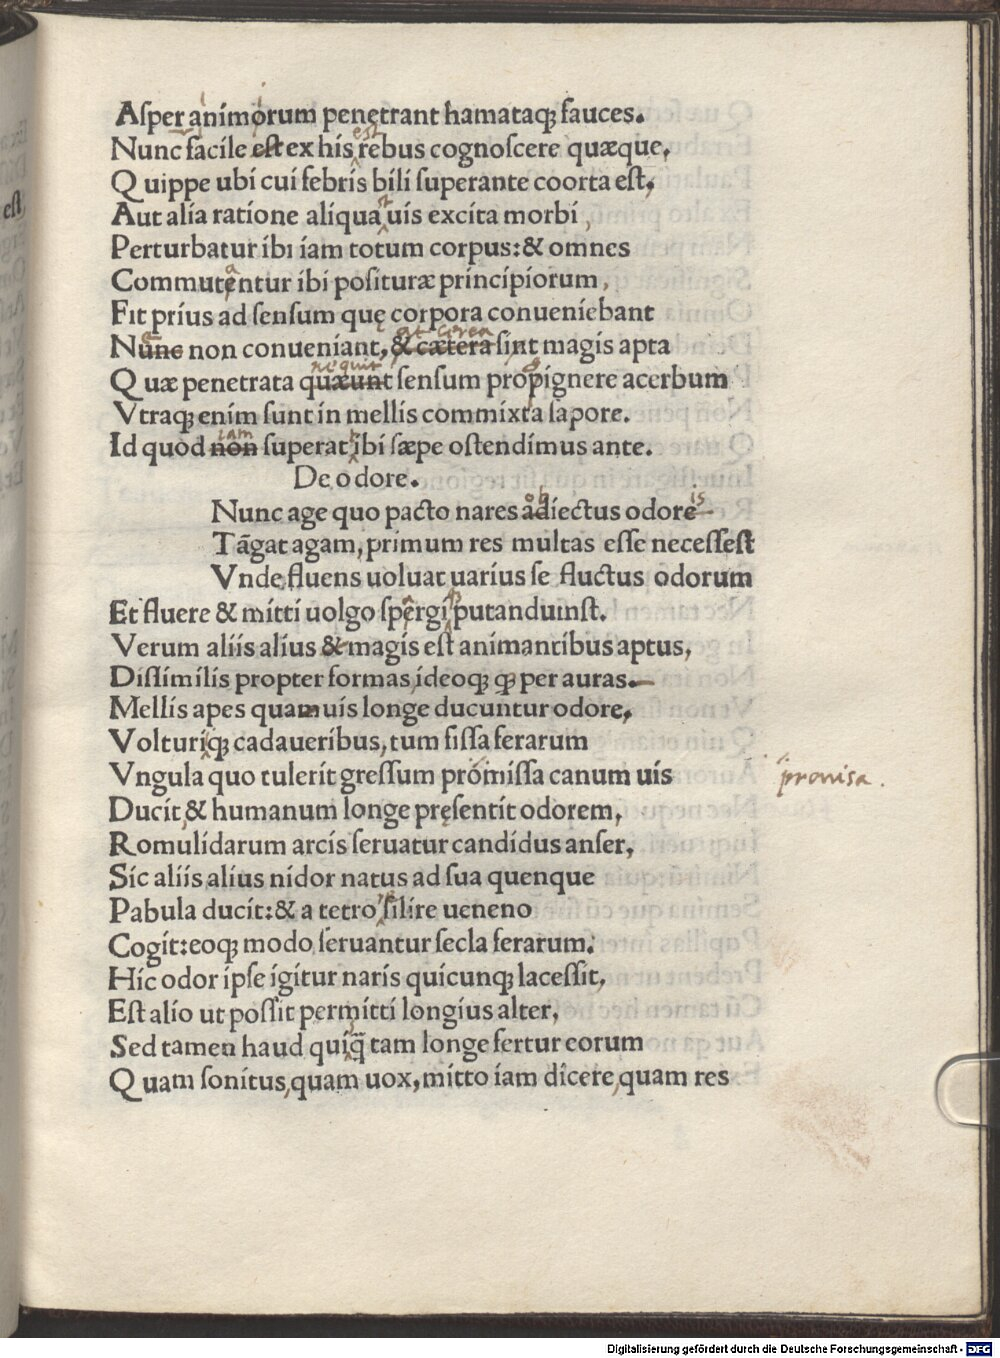 Aſper animorum penetrant hamataqꝫ fauces.
est
Nunc facile est ex his rebus cognoſcere quæque,
Quippe ubi cui febris bili ſuperante coorta eſt,
Aut alia ratione aliqua uis excita morbi,
Perturbatur ibi iam totum corpus:& omnes
Commutentur ibi poſituræ principiorum,
Fit prius ad ſenſum quę corpora conueniebant
Nunc non conueniant, & cætera ſint magis apta
nequit
Quæ penetrata quæunt ſenſum propignere acerbum
Vtraqꝫ enim ſunt in mellis commixta ſapore.
iam
Id quod non ſuperat ibi ſæpe oſtendimus ante.
De odore.
ob is
Nunc age quo pacto nares adiectus odore
Tāgat agam, primum res multas eſſe neceſſeſt
Vnde fluens uoluat uarius ſe fluctus odorum
Et fluere & mitti uolgo ſpergi putanduinſt.
Verum aliis alius & magis eſt animantibus aptus,
Diſſimilis propter formas, ideoqꝫ qꝫ per auras.
Mellis apes quamuis longe ducuntur odore,
Volturiqꝫ cadaueribus, tum fiſſa ferarum
Vngula quo tulerit greſſum promiſſa canum uis
prouisa.
Ducit, & humanum longe pręſentit odorem,
Romulidarum arcis ſeruatur candidus anſer,
Sic aliis alius nidor natus ad ſua quenque
Pabula ducit:& a tetro ſilire ueneno
Cogit:eoqꝫ modo ſeruantur ſecla ferarum.
Hic odor ipſe igitur naris quicunqꝫ laceſſit,
Eſt alio ut poſſit permitti longius alter,
Sed tamen haud quiq̄ tam longe fertur eorum
Quam ſonitus, quam uox, mitto iam dicere, quam res
eſt,
Digitalisierung gefördert durch die Deutsche Forschungsgemeinschaft - DFG